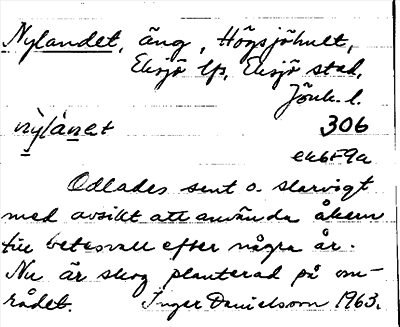 Nylandet, äng, Högsjöhult,
Eksjö lfs, Eksjö stad,
Jönk. l.
nỳlànet 306
ek6F9a
Odlades sent o. slarvigt
med avsikt att använda åkern
till betesvall efter några år.
Nu är skog planterad på om-
rådet. Inger Danielsson 1963.